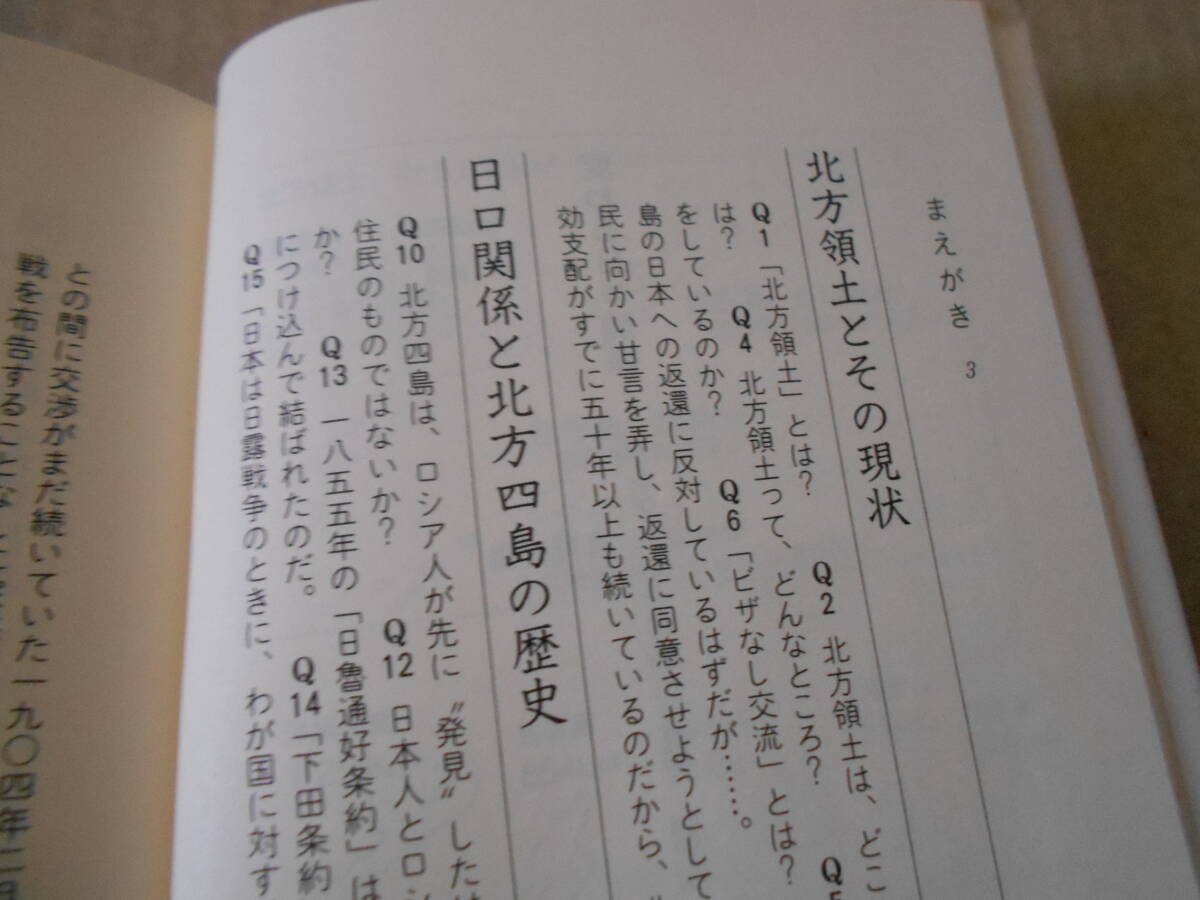 まえがき 3
北方領土とその現状
Q1 「北方領土」とは? Q2 北方領土は、どこ
は? Q4 北方領土って、どんなところ? Q5
をしているのか? Q6 「ビザなし交流」とは?
島の日本への返還に反対しているはずだが……。
民に向かい甘言を弄し、返還に同意させようとして
効支配がすでに五十年以上も続いているのだから、
日ロ関係と北方四島の歴史
Q10 北方四島は、ロシア人が先に〝発見〟した
住民のものではないか? Q12 日本人とロシ
か? Q13 一八五五年の「日魯通好条約」は
につけ込んで結ばれたのだ。 Q14 「下田条約
Q15 「日本は日露戦争のときに、わが国に対す
との間に交渉がまだ続いていた一九〇四年二
戦を布告することな